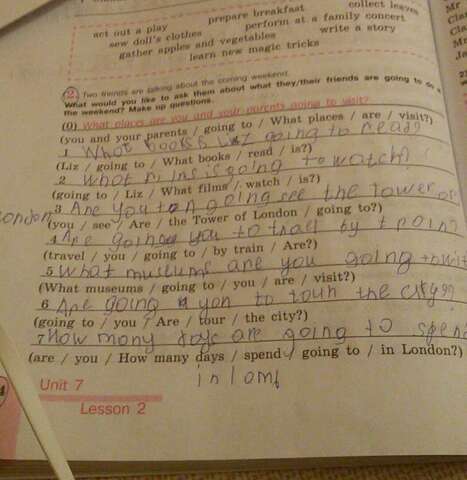 collect leaves
prepare breakfast
act out a play
perform at a family concert
sew doll's clothes
write a story
gather apples and vegetables
learn new magic tricks
2. Two friends are talking about the coming weekend.
What would you like to ask them about what they/their friends are going to do
the weekend? Make up questions.
(0) What places are you and your parents going to visit?
(you and your parents / going to / What places / are / visit?)
1 What books Liz going to read?
(Liz / going to / What books / read / is?)
2 What is going to watch
(going to / Liz / What films / watch / is?)
London
3 Are you going see the Tower of
(you / see / Are / the Tower of London / going to?)
4 Are going you to travel by train?
(travel / you / going to / by train / Are?)
5 What museums are you going
(What museums / going to / you / are / visit?)
6 Are going you to tour the city?
(going to / you / Are / tour / the city?)
7 How many days are going to spend
(are / you / How many days / spend / going to / in London?)
in
Unit 7
Lesson 2